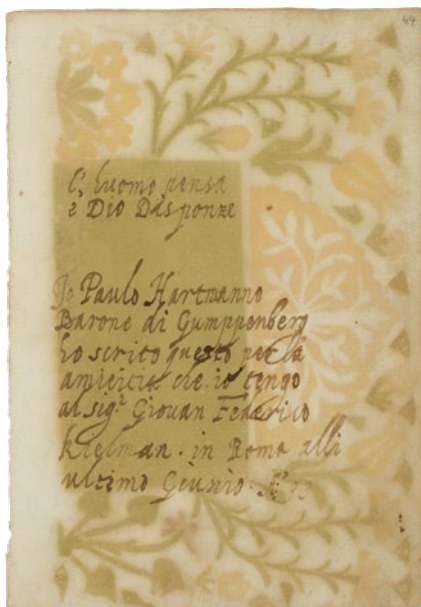 44
L'huomo pensa
e Dio Disponze
Io Paulo Hartmanno
Barone di Gumppenberg
ho scrito questo per la
amicicia che io tengo
al sigr Giovan Federico
Kielman . in Roma alli
ultimo Giunio . Ao 93